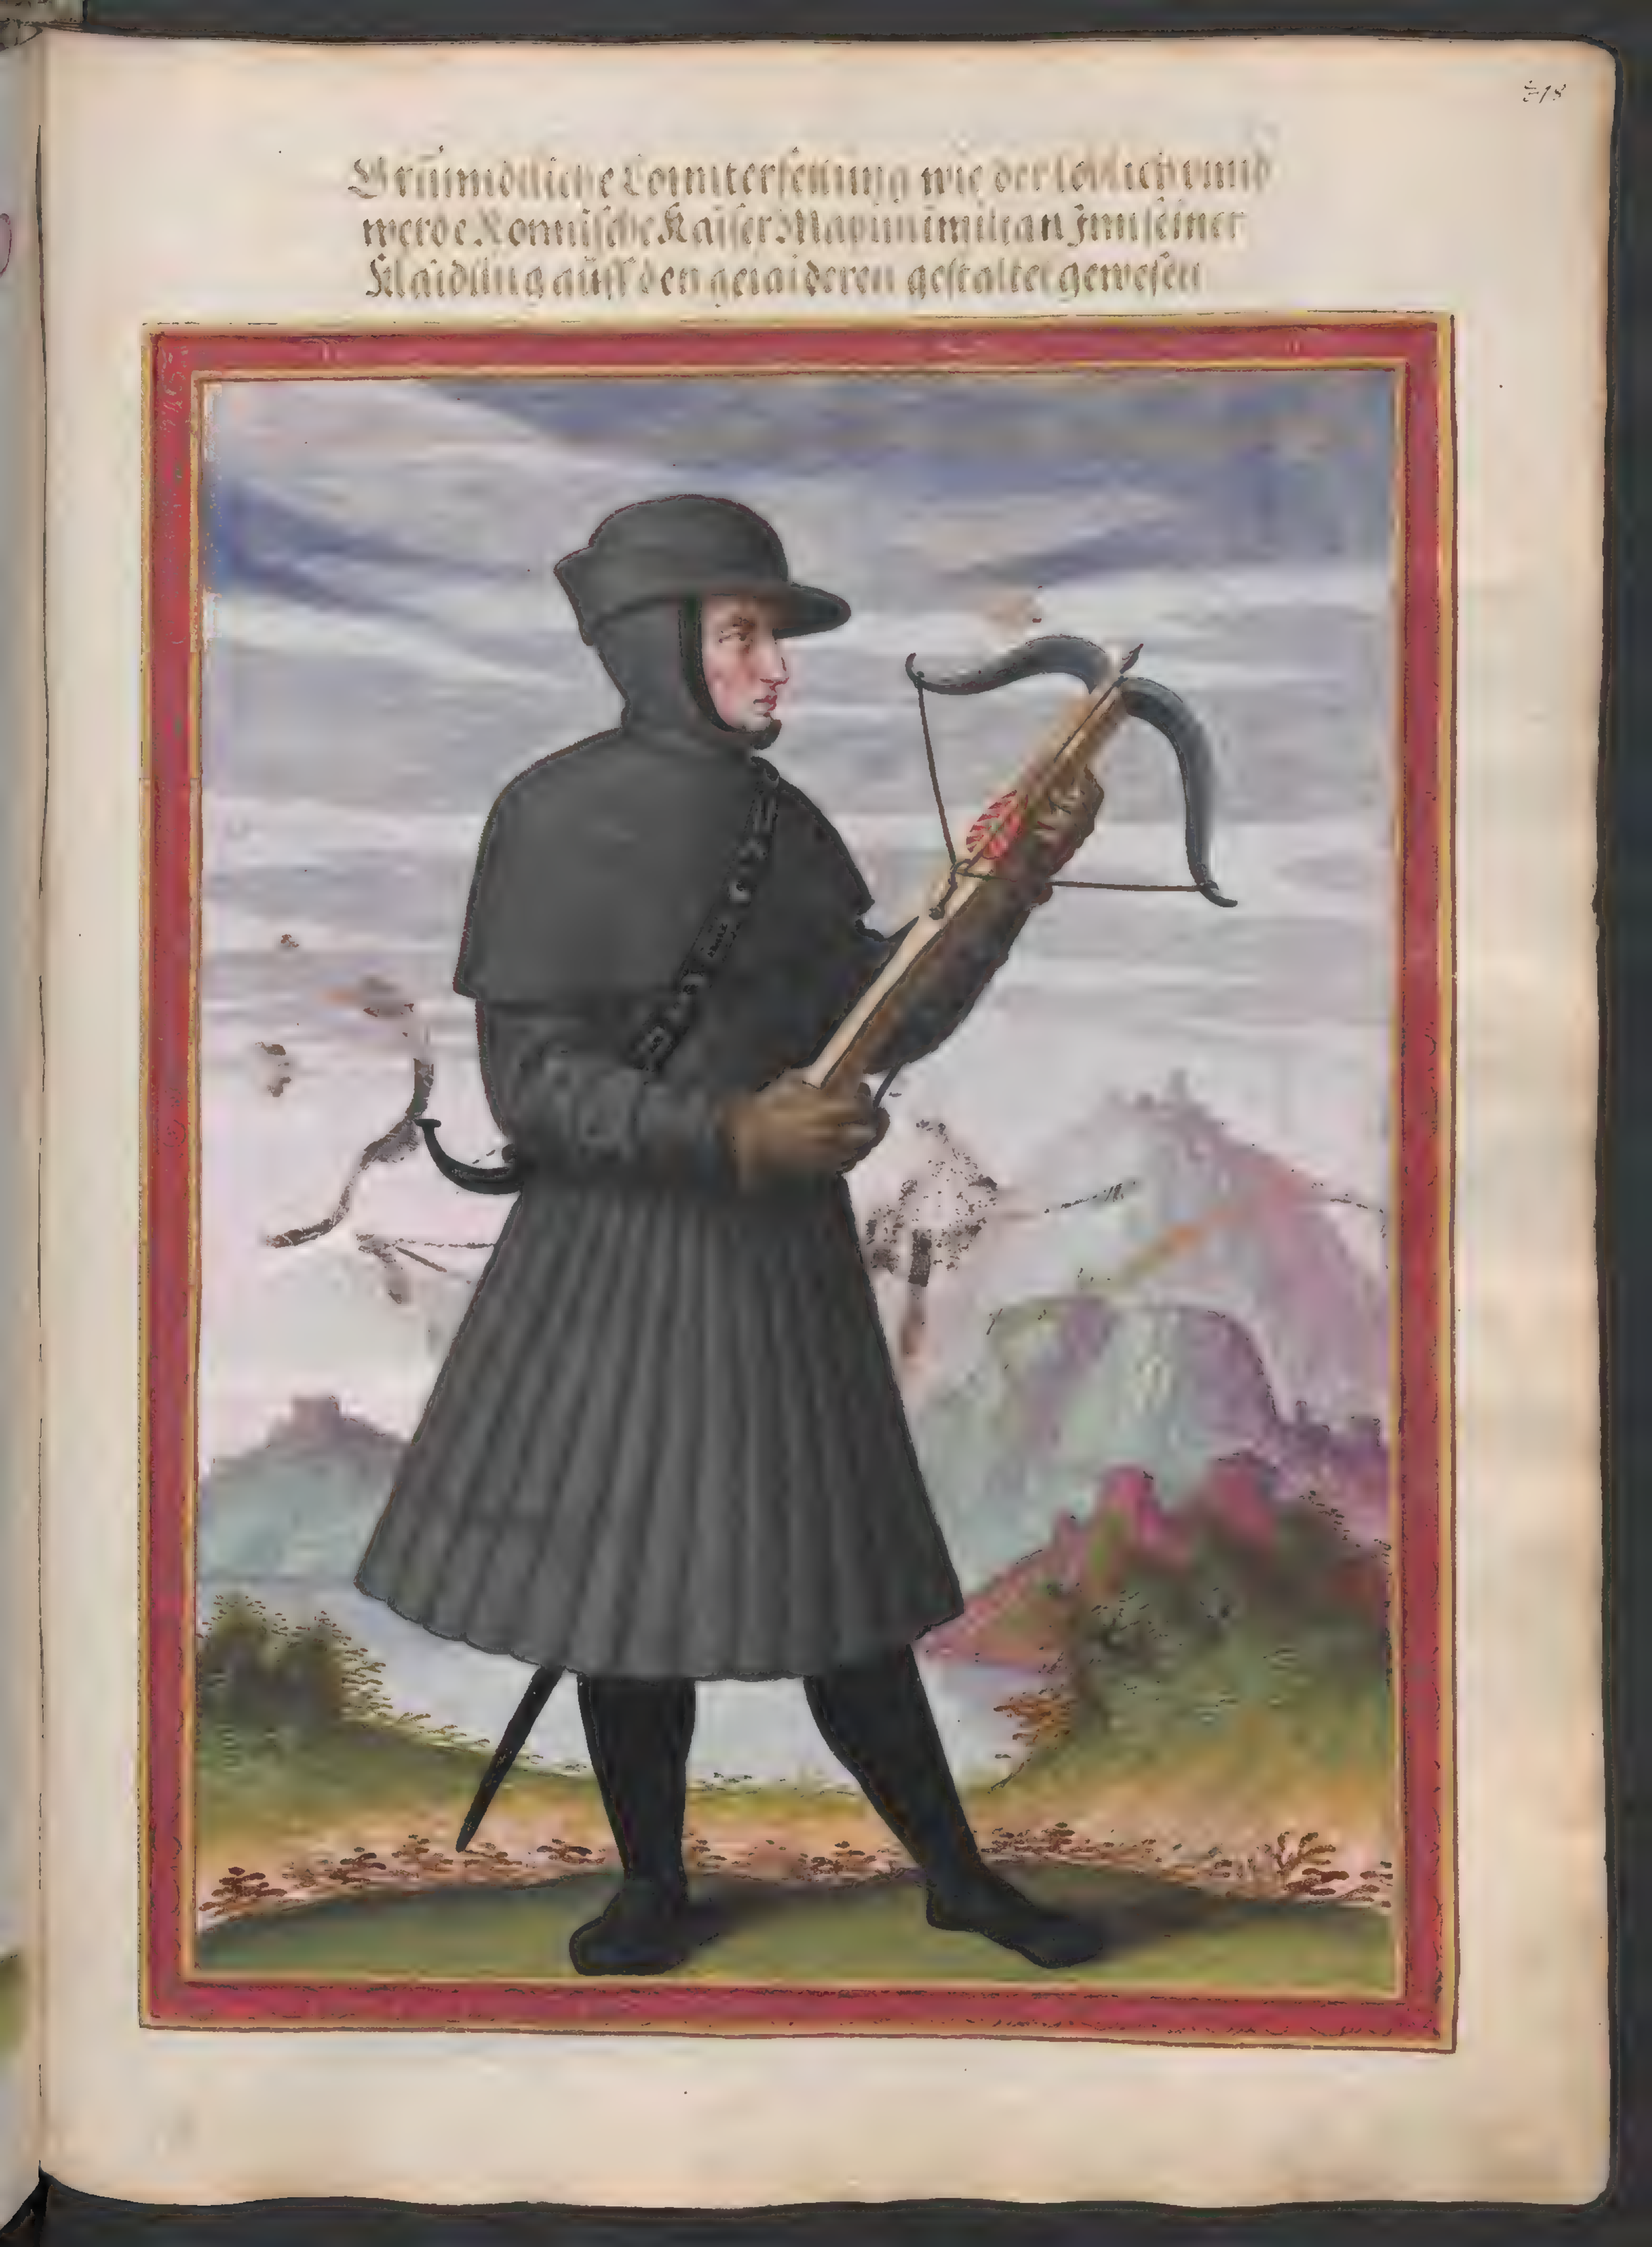 218
Gründtliche Connterfettung wie der löblich unnd
werde Romische Kaiser Maxinimilian Jnn seiner
Klaidung auff den gejaideren gestaltet gewesen